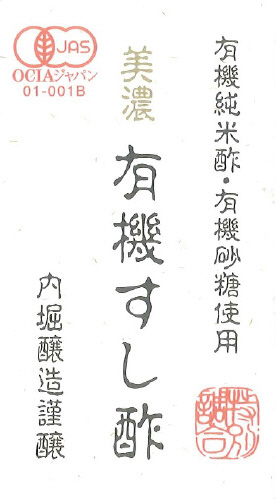 JAS
OCIAジャパン
01-001B
有機純米酢・有機砂糖使用
美濃
有機すし酢
内堀醸造謹醸
特別
調合